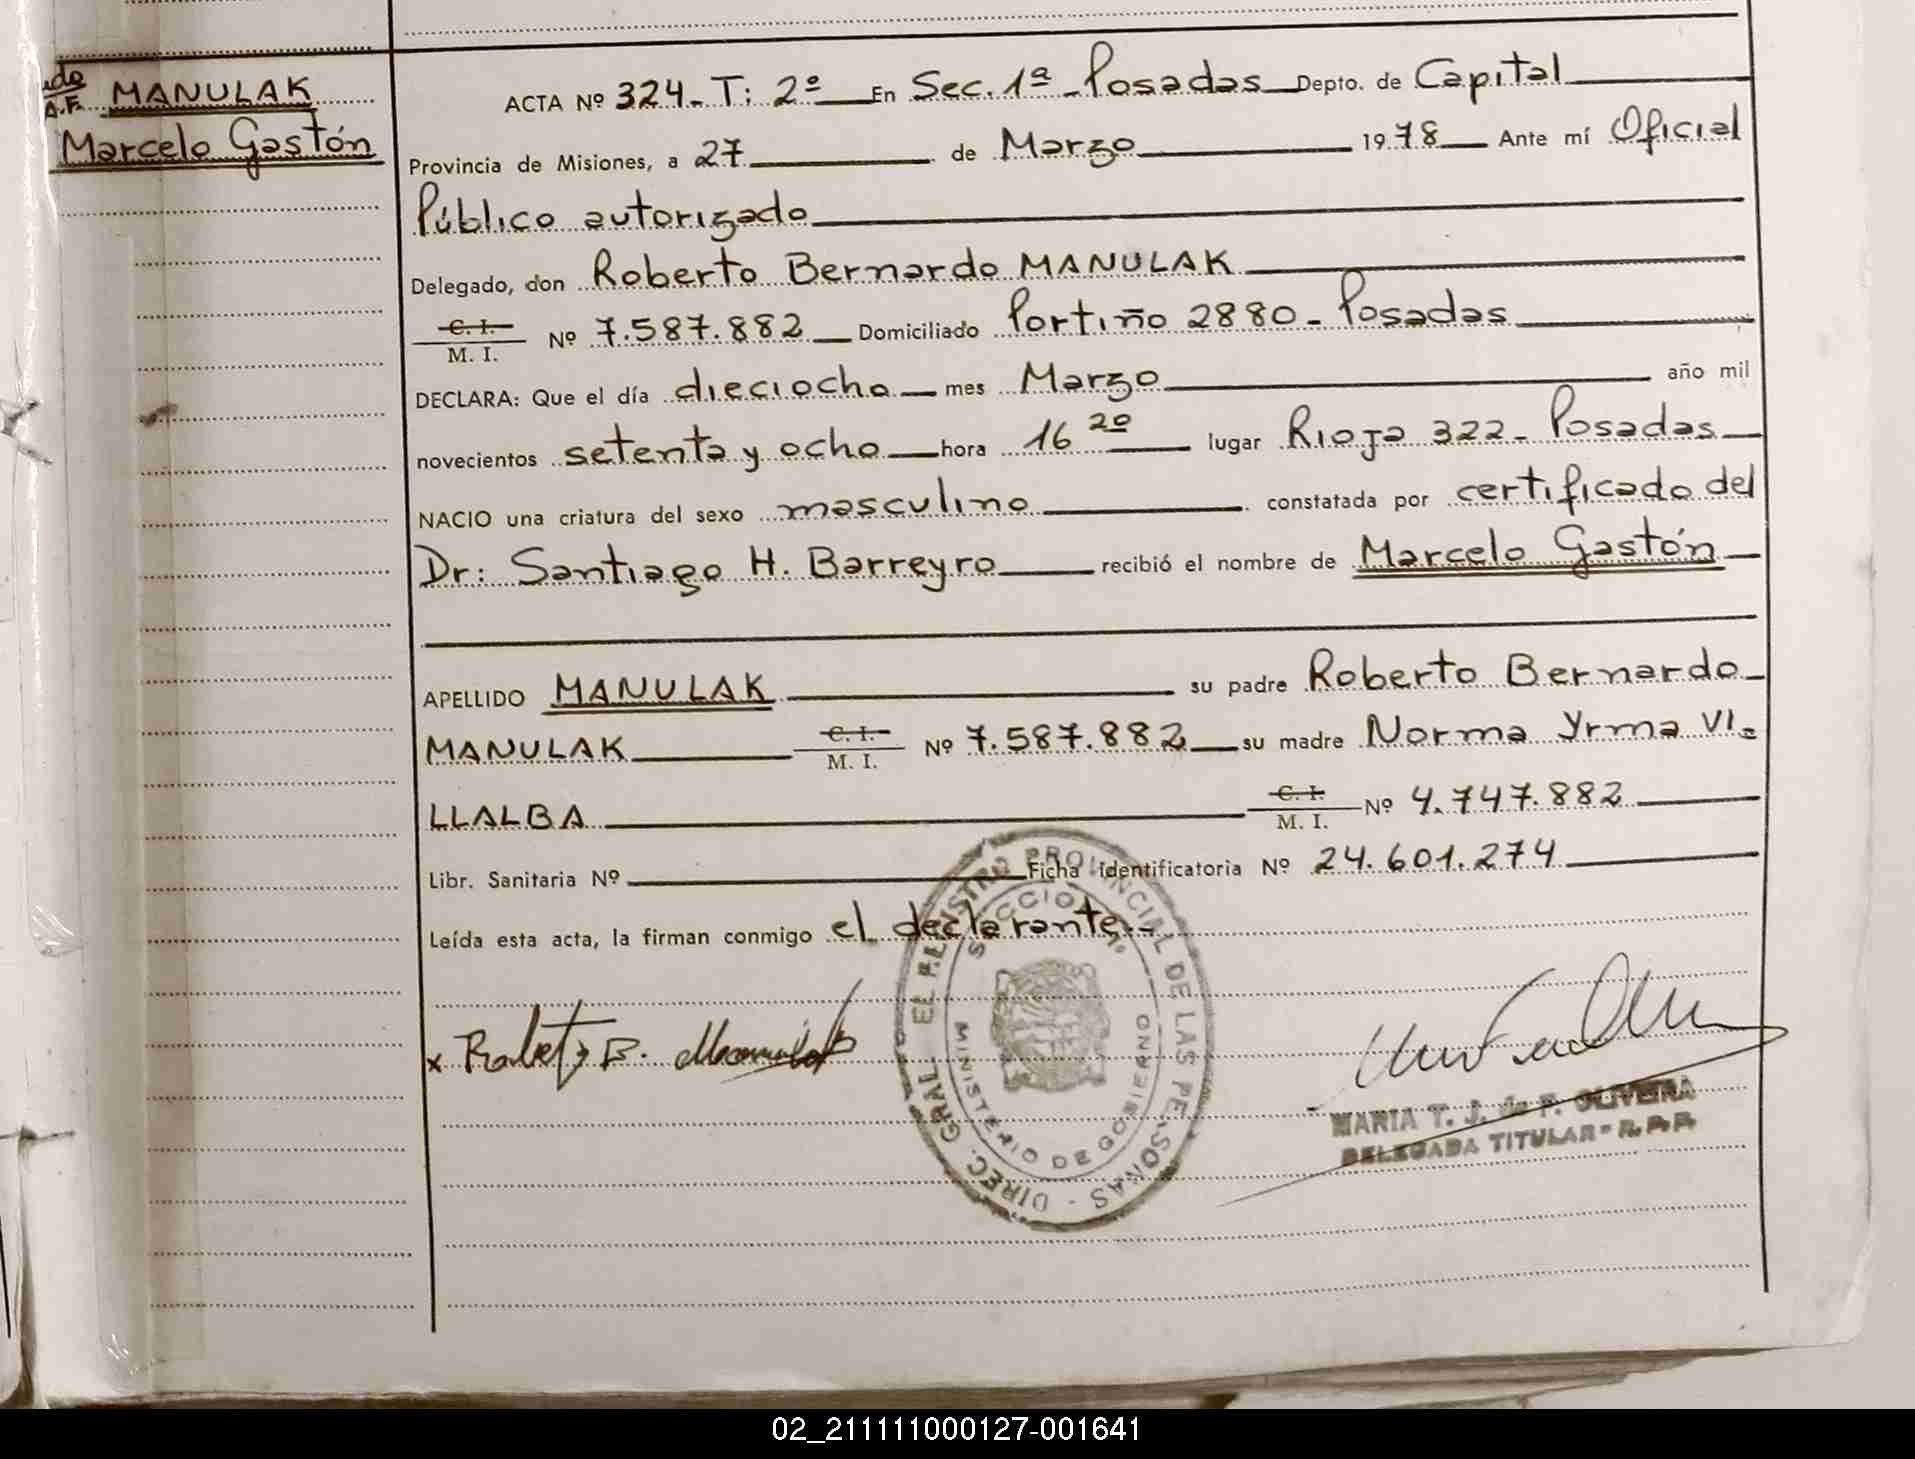 MANULAK
Marcelo Gastón
ACTA Nº 324. T: 2º En Sec. 1ª - Posadas Depto. de Capital
Provincia de Misiones, a 27 de Marzo 1978 Ante mí Oficial
Público autorizado
Delegado, don Roberto Bernardo MANULAK
C. I.
M. I. Nº 7.587.882 Domiciliado Portiño 2880 - Posadas
DECLARA: Que el día dieciocho mes Marzo año mil
novecientos setenta y ocho hora 16 20 lugar Rioja 322 - Posadas
NACIO una criatura del sexo masculino constatada por certificado del
Dr: Santiago H. Barreyro recibió el nombre de Marcelo Gastón
APELLIDO MANULAK su padre Roberto Bernardo
MANULAK C. I. M. I. Nº 7.587.882 su madre Norma Yrma VI=
LLALBA C. I. M. I. Nº 4.747.882
Libr. Sanitaria Nº Ficha Identificatoria Nº 24.601.274
Leída esta acta, la firman conmigo el declarante.-
x Roberto B. Manulak
DIREC. GRAL EL REGISTRO PROVINCIAL DE LAS PERSONAS
SECCION 1ª
MINISTERIO DE GOBIERNO
MARIA T. J. de F. OLIVEIRA
DELEGADA TITULAR - R. P. P.
02_211111000127-001641